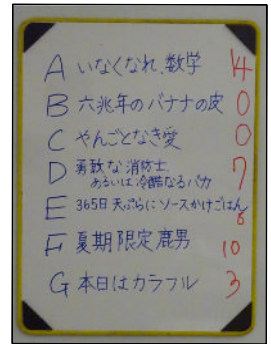 A いなくなれ、数学 14
B 六兆年のバナナの皮 0
C やんごとなき愛 0
D 勇敢な消防士、 7
あるいは冷酷なるバカ
E 365日天ぷらにソースかけごはん 8
F 夏期限定鹿男 10
G 本日はカラフル 3